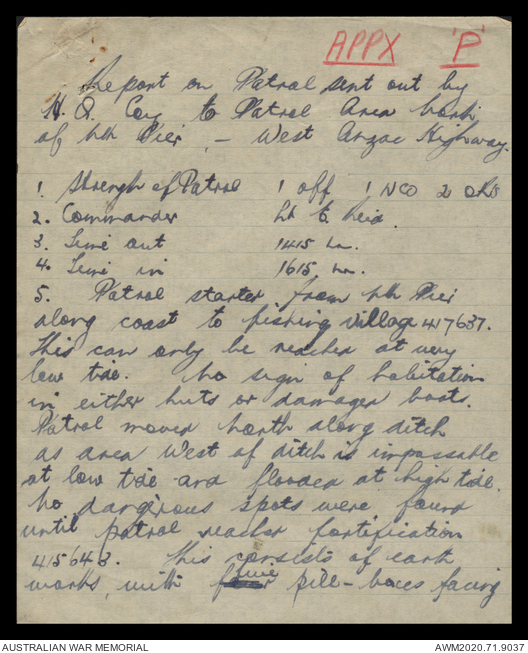 APPX 'P'
Report on Patrol sent out by
H.Q. Coy to Patrol Area North
of Nth Pier, – West Anzac Highway.
1. Strength of Patrol 1 off 1 NCO 2 ORS
2. Commander Lt E. Reid.
3. Time out 1415 hr.
4. Time in 1615 hr.
5. Patrol started from Nth Pier
along coast to fishing village 417637.
This can only be reached at very
low tide. No sign of habitation
in either huts or damaged boats.
Patrol moved North along ditch
as area West of ditch is impassable
at low tide and flooded at high tide.
No dangerous spots were found
until patrol reached fortification
415643. This consists of earth
works, with pill-boxes facing
AUSTRALIAN WAR MEMORIAL AWM2020.71.9037